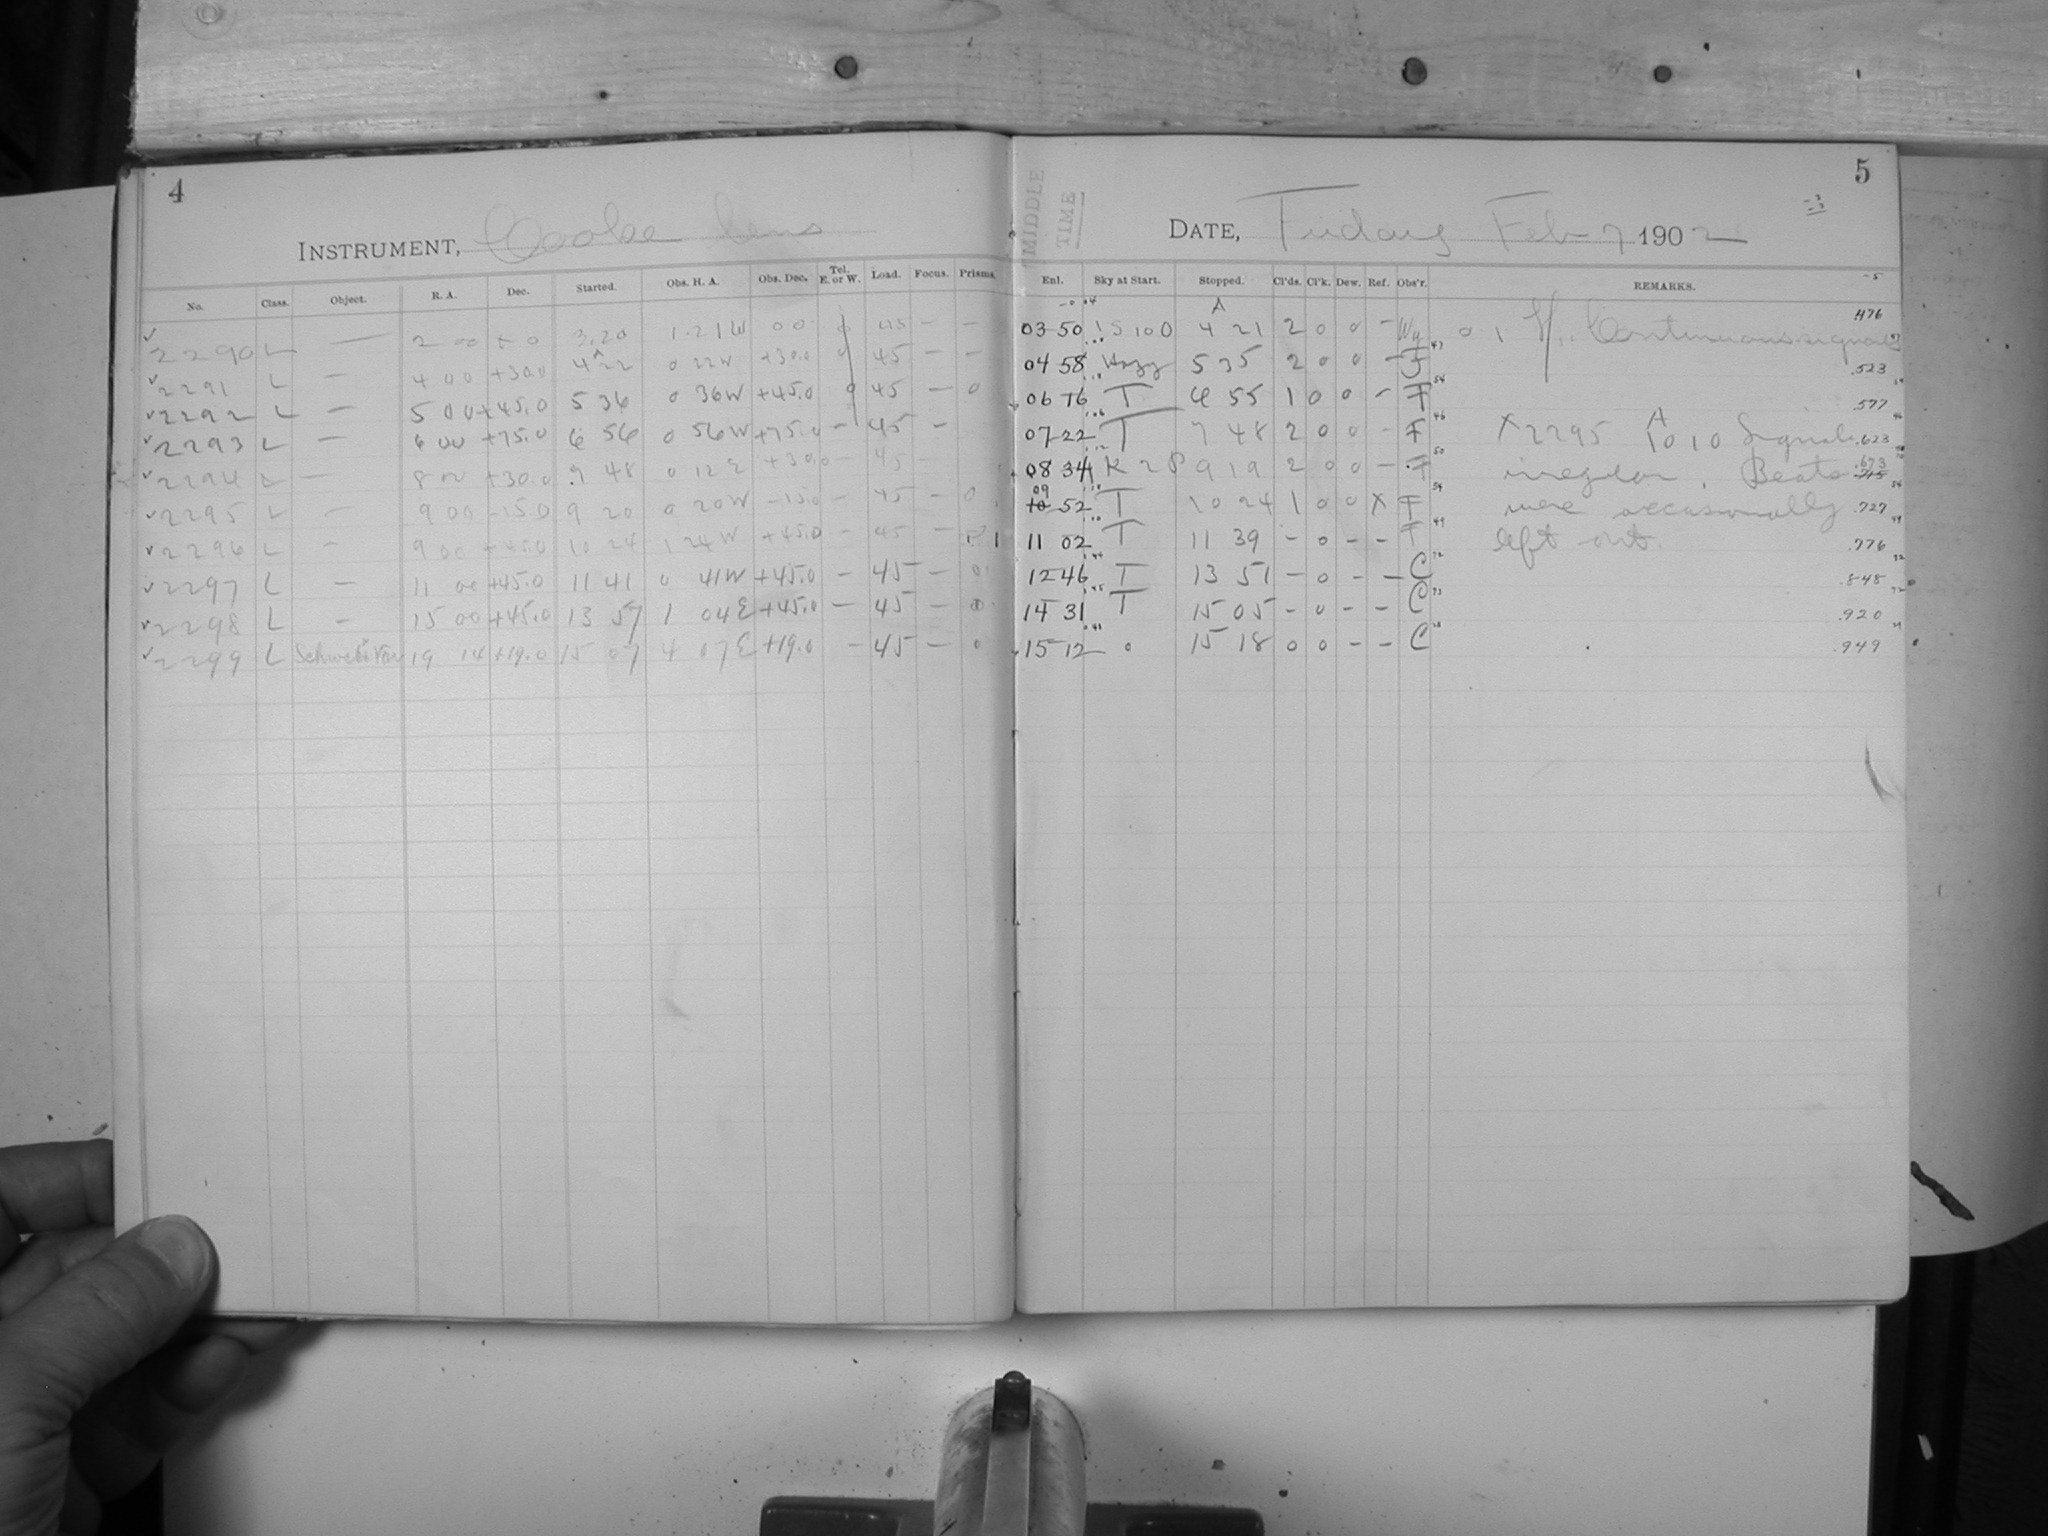 4
INSTRUMENT, Cooke lens
No. Class. Object. R. A. Dec. Started. Obs. H. A. Obs. Dec. Tel. E. or W. Load. Focus. Prisms.
2290 L — 2 00 3.20 1.21W 00 45 — —
2291 L — 4 00 +30.0 4 22 0 22W +30.0 45 — —
2292 L — 5 00 +45.0 5 36 0 36W +45.0 45 — 0
2293 L — 6 00 +75.0 6 56 0 56W +75.0 — 45 —
2294 L — 8 00 +30.0 7 48 0 12E +30.0 — 45 —
2295 L — 9 00 -15.0 9 20 0 20W -15.0 — 45 — 0
2296 L — 9 00 +45.0 10 24 1 24W +45.0 — 45 —
2297 L — 11 00 +45.0 11 41 0 41W +45.0 — 45 — 0
2298 L — 15 00 +45.0 13 57 1 04E +45.0 — 45 — 0
2299 L 19 14 +19.0 15 07 4 07E +19.0 — 45 — 0
5
MIDDLE
TIME
DATE, Friday Feb 7 1902
Enl. Sky at Start. Stopped. Cl'ds. Cl'k. Dew. Ref. Obs'r. REMARKS.
03 50 S 100 4 21 2 0 0 — Continuous signals .476
04 58 Hazy 5 35 2 0 0 — F .523
06 16 T 6 55 1 0 0 — F .577
07 22 T 7 48 2 0 0 — F X 2295 10 10 Signals .623
08 34 K 2 P 9 19 2 0 0 — F irregular. Beats .673
09 52 T 10 24 1 0 0 X F were occasionally .727
11 02 T 11 39 — 0 — — F left out. .776
12 46 T 13 51 — 0 — — C .848
14 31 T 15 05 — 0 — — C .920
15 12 0 15 18 0 0 — — C .949